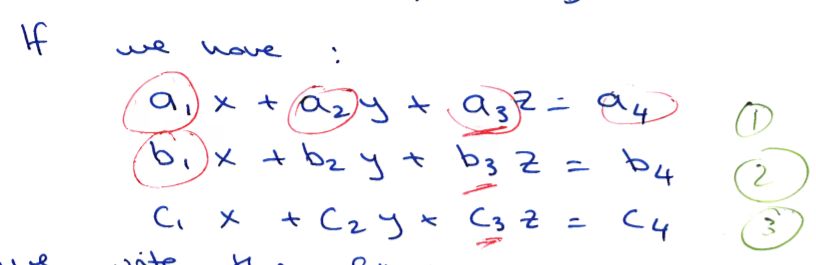 If we have :
a₁ x + a₂ y + a₃ z = a₄ ①
b₁ x + b₂ y + b₃ z = b₄ ②
c₁ x + c₂ y + c₃ z = c₄ ③